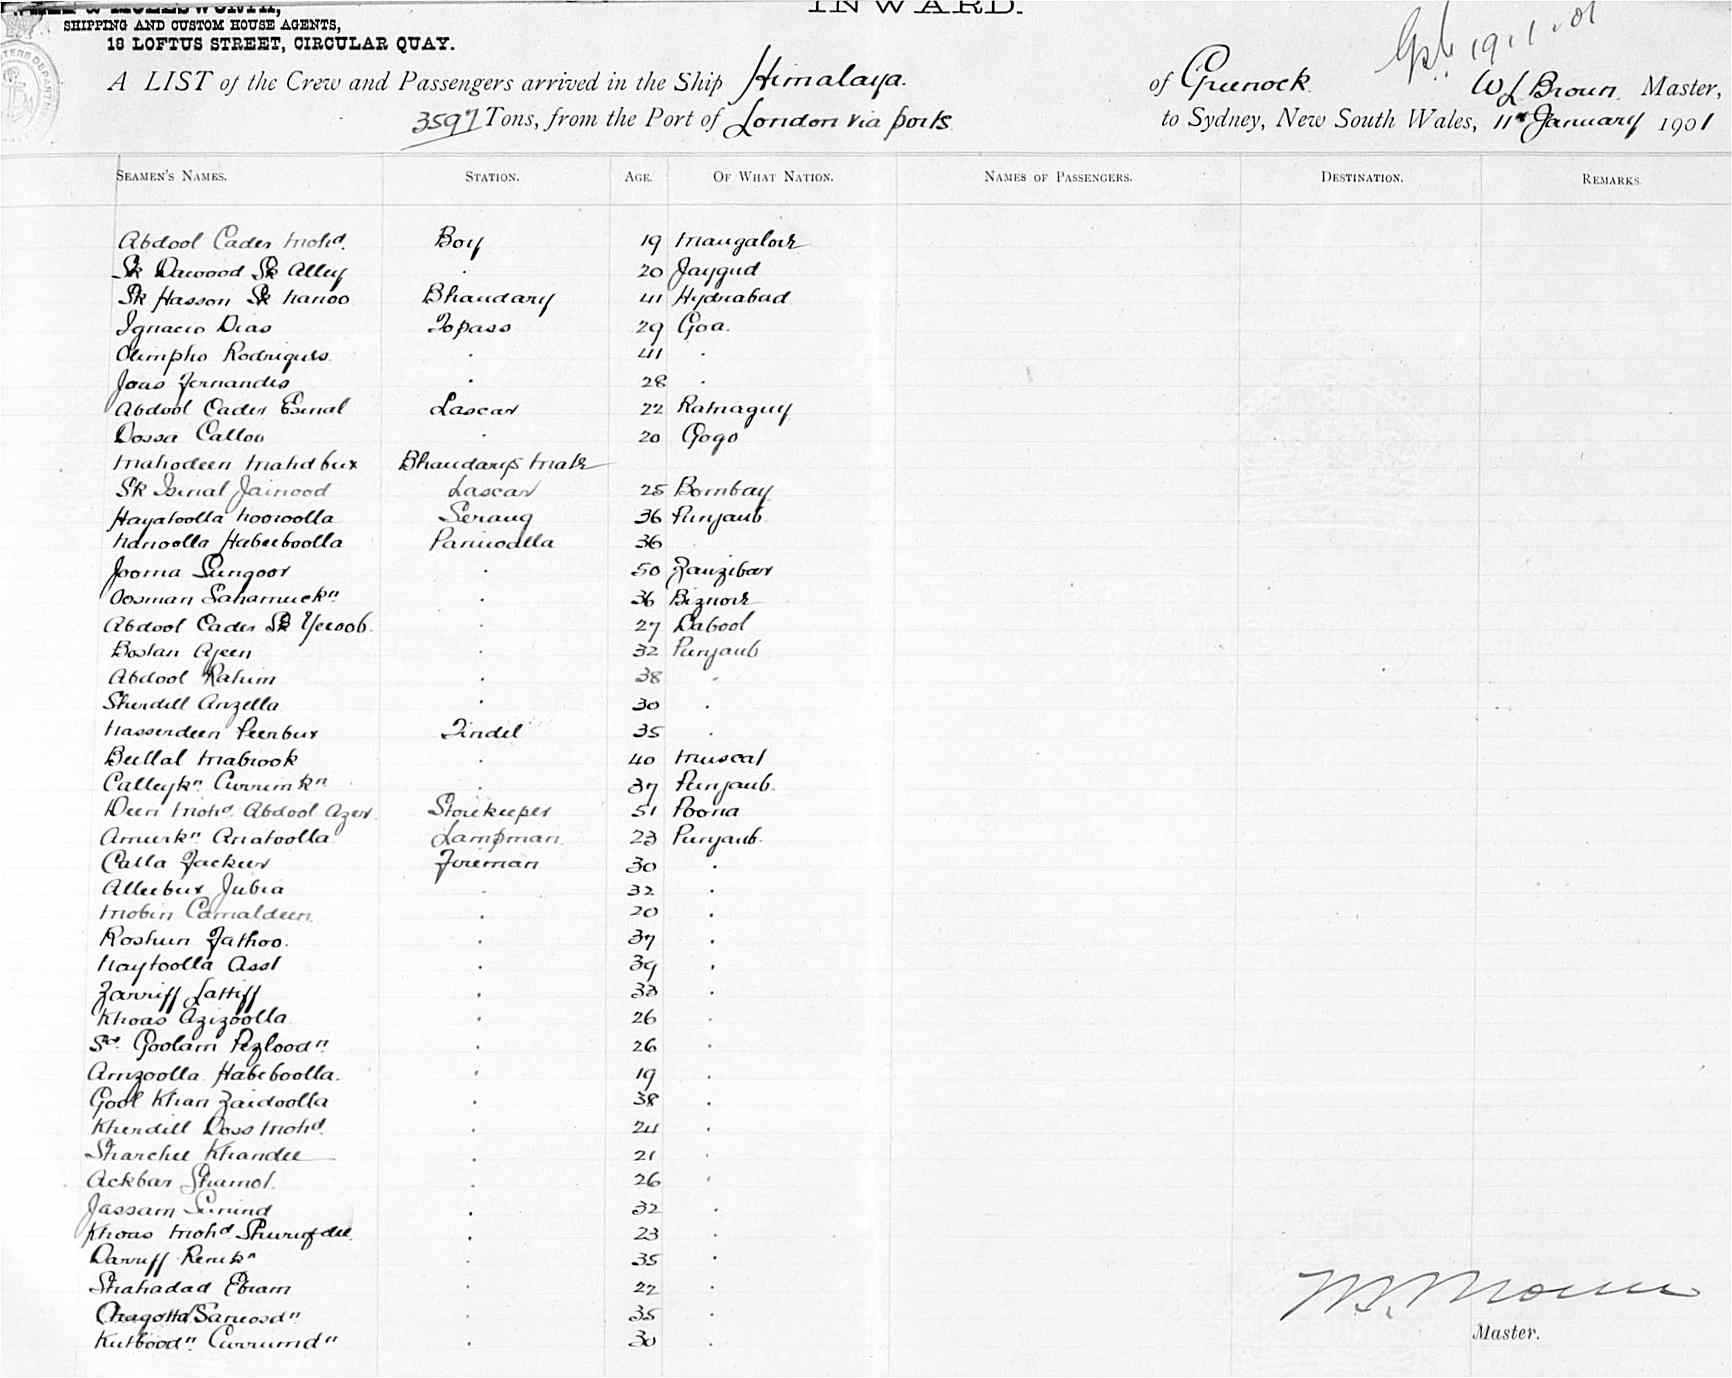 & MOLESWORTH,
INWARD.
SHIPPING AND CUSTOM HOUSE AGENTS,
18 LOFTUS STREET, CIRCULAR QUAY.
A LIST of the Crew and Passengers arrived in the Ship Himalaya. of Greenock W L Broun Master,
3597 Tons, from the Port of London via ports to Sydney, New South Wales, 11th January 1901
SEAMEN'S NAMES. STATION. AGE. OF WHAT NATION. NAMES OF PASSENGERS. DESTINATION. REMARKS.
Abdool Cader Mohd. Boy 19 Mangalore
Sk Dawood Sk Alley . 20 Jaygud
Sk Hasson Sk Nanoo Bhandary 41 Hydrabad
Ignacio Dias Topass 29 Goa.
Olimpho Rodrigues . 41 .
Joas Fernandes . 28 .
Abdool Cader Esmal Lascar 22 Ratnaguy
Dossa Callou . 20 Gogo
Mahodeen Mahd bux Bhandarys Mate
Sk Ismal Jainood Lascar 25 Bombay
Hayatoolla Nooroolla Serang 36 Punjaub
Nanoolla Habeeboolla Paniwalla 36
Jooma Sungoor . 50 Zanzibar
Oosman Sahamuckn . 36 Biznore
Abdool Cader Sk Yecoob . 27 Dabool
Bostan Ajeen . 32 Punjaub
Abdool Rahim . 38 .
Sherdill Anzella . 30 .
Nasserdeen Peerbux Tindel 35 .
Bellal Mabrook . 40 Muscat
Calleykn Currimkn . 37 Punjaub.
Deen Mohd Abdool Azer Storekeeper 51 Poona
Ameerkn Anatoolla Lampman 23 Punjaub.
Calla Fackeer Fireman 30 .
Alleebux Jubia . 32 .
Mobin Camaldeen . 20 .
Roshun Fathoo. . 37 .
Naytoolla Assl . 39 .
Zarriff Lattiff . 33 .
Khoas Azizoolla . 26 .
Sd. Goolam Fezloodn . 26 .
Amzoolla Habeboolla. . 19 .
Gool Khan Zaidoolla . 38 .
Kherdill Doss Mohd . 24 .
Sharchee Khandee . 21 .
Ackbar Shamot. . 26 .
Jassam . 32 .
Khoas Mohd . 23 .
Darruff . 35 .
Shahadad Ebram . 22 .
. 35 .
Kutboodn Currumdn . 30 .
Master.